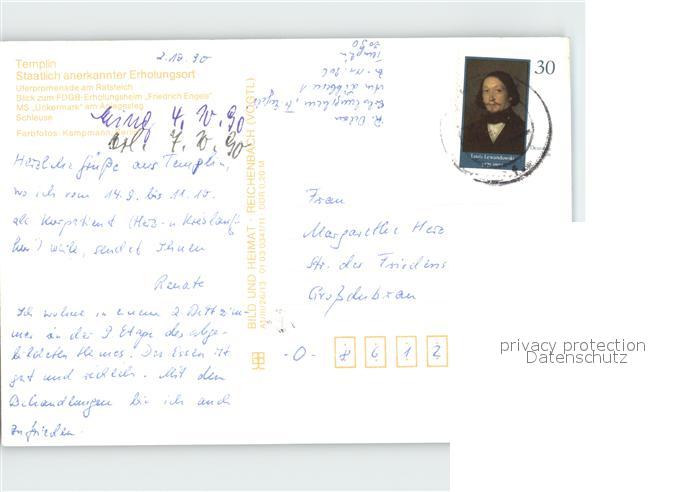 2.10.90
Templin
Staatlich anerkannter Erholungsort
Uferpromenade am Ratsteich
Blick zum FDGB-Erholungsheim „Friedrich Engels"
MS „Uckermark" am Anlegesteg
Schleuse
Farbfotos: Kampmann, Berlin
Eing. 4. 10. 90
erl. 7. 10. 90
Herzliche Grüße aus Templin,
wo ich vom 14.9. bis 11.10.
als Kurpatient (Herz- u. Kreislauf-
kur) weile, sendet Ihnen
Renate
Ich wohne in einem 2 Bettzim-
mer in der 9. Etage des abge-
bildeten Heimes. Das Essen ist
gut und reichlich. Mit den
Behandlungen bin ich auch
zufrieden.
BILD UND HEIMAT · REICHENBACH (VOGTL)
A1/III/26/13 01 03 0341/11 DDR 0,20 M
Templin
2090
30
Louis Lewandowski
Frau
Margarethe Herz
Str. des Friedens
Großdubrau
-0- 8612
privacy protection
Datenschutz